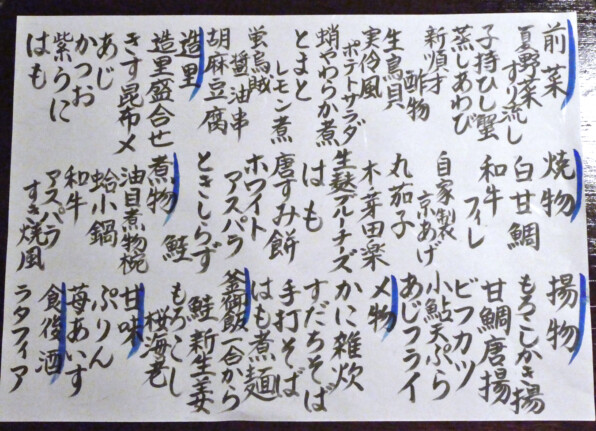 前菜
夏野菜
すり流し
子持ひし蟹
蒸しあわび
新順才
酢物
生鳥貝
実伶風
ポテトサラダ
蛸やわらか煮
レモン煮
とまと
蛍烏賊
醤油串
胡麻豆腐
造里
造里盛合せ
きす昆布〆
あじ
かつお
紫うに
はも
焼物
白甘鯛
和牛
フィレ
自家製
京あげ
丸茄子
木芽田楽
生麩ブルーチーズ
はも
唐すみ餅
ホワイト
アスパラ
ときしらず
鮭
煮物
油目煮物椀
蛤小鍋
和牛
アスパラ
すき焼風
揚物
もろこしかき揚
甘鯛唐揚
ビフカツ
小鮎天ぷら
あじフライ
〆物
かに雑炊
すだちそば
手打そば
はも煮麺
釜御飯一合から
鮭新生姜
もろこし
桜海老
甘味
ぷりん
苺あいす
食後酒
ラタフィア